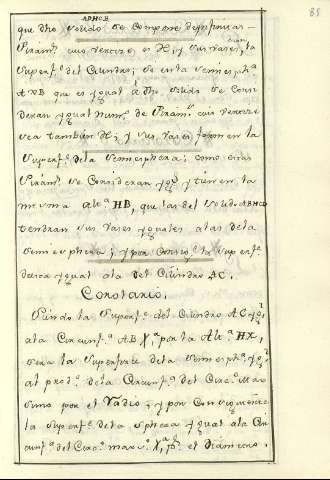 85
ADHCB
que dho solido se compone de infinitas
Piram.s cuio vertice es X, y sus vases, la
superf.e del Cilindro; se en la semiesph.a
ANB que es ygual a dho solido se Consi
deran ygual num.o de Piram.s cuio vertice
sea tambien X; y sus vases formen la
superf.e dela semiesphera; como estas
Piram.s se Consideran yg.s y tienen la
misma Alt.a HB, que las del solido ADHCB
tendran sus vases yguales alas dela
semiesphera; y por Consig.te la superf.e
de esta ygual ala del Cilindro AC.
Corolario.
Siendo la superf.e del Cilindro AC yg.l
ala Circunf.a AB X.a por la Alt.a HX,
sera la superficie dela semiesph.a yg.l
al prod.o dela Circunf.a del Circ.o Ma
simo por el Radio; y por Consiguiente
la superf.e dela sphera ygual ala Cir
cunf.a del Circ.o max.o X.a p.r el Diametro.